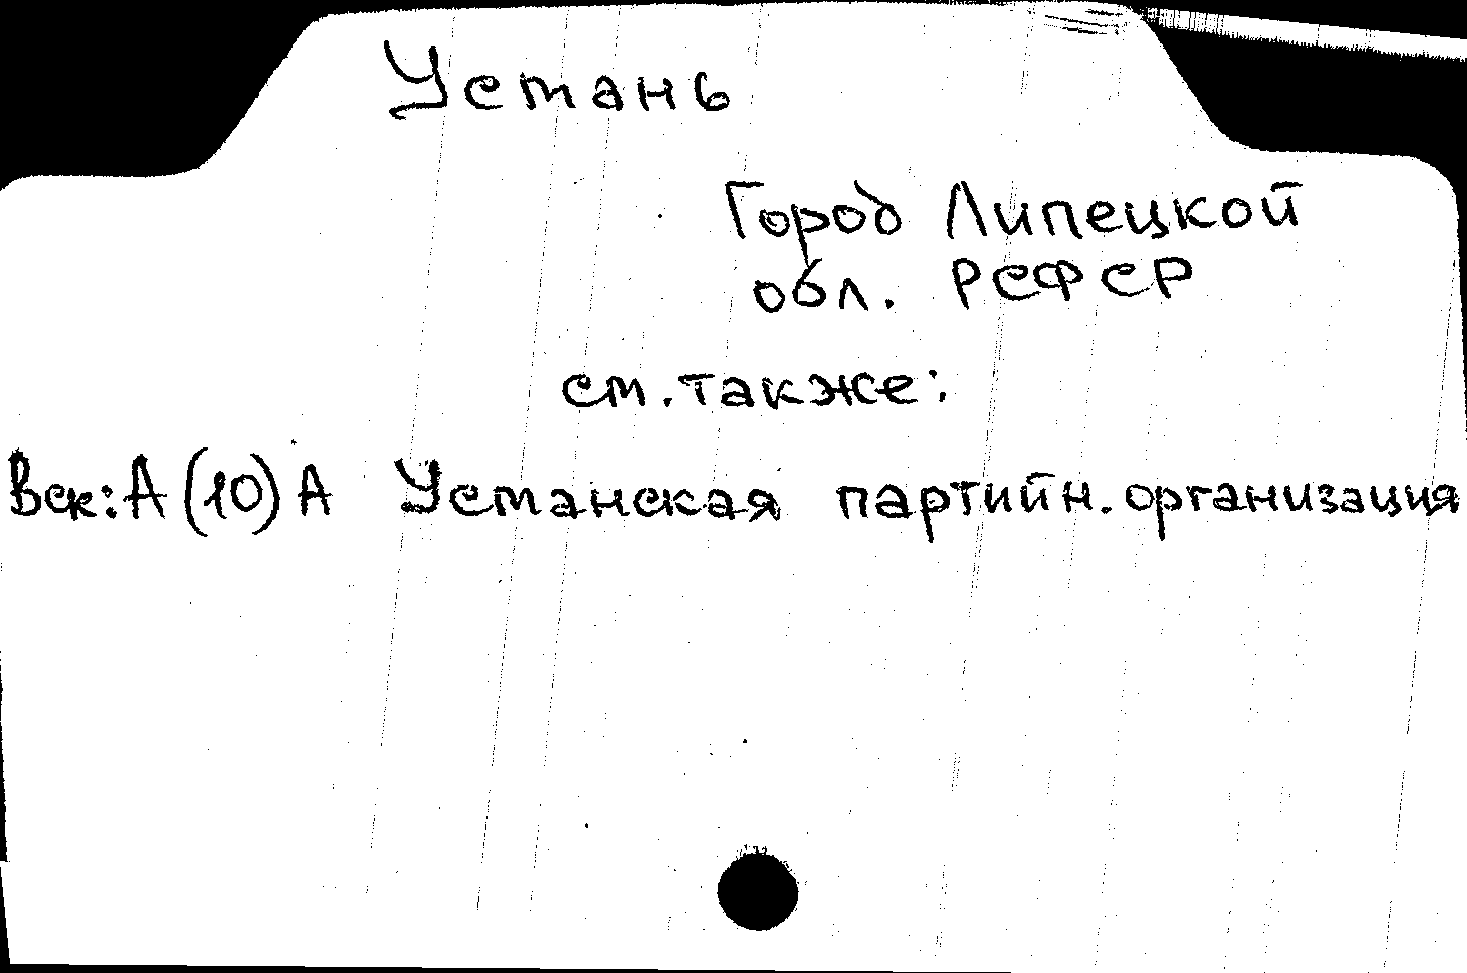 Устань
Город Липецкой
обл. РСФСР
см. также:
Вск: А (10) А Устанская партийн. организация